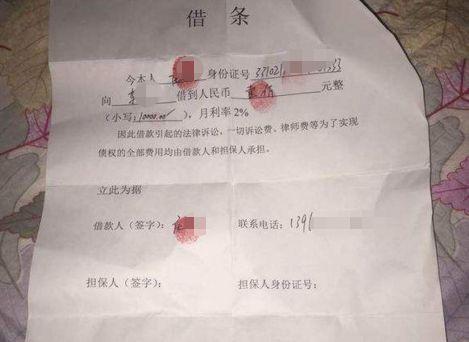 借 条
今本人 身份证号 331021 333
向 李 借到人民币 壹佰 元整
（小写：10000.00/），月利率2%
因此借款引起的法律诉讼，一切诉讼费、律师费等为了实现
债权的全部费用均由借款人和担保人承担。
立此为据
借款人（签字）： 联系电话：139
担保人（签字）： 担保人身份证号：